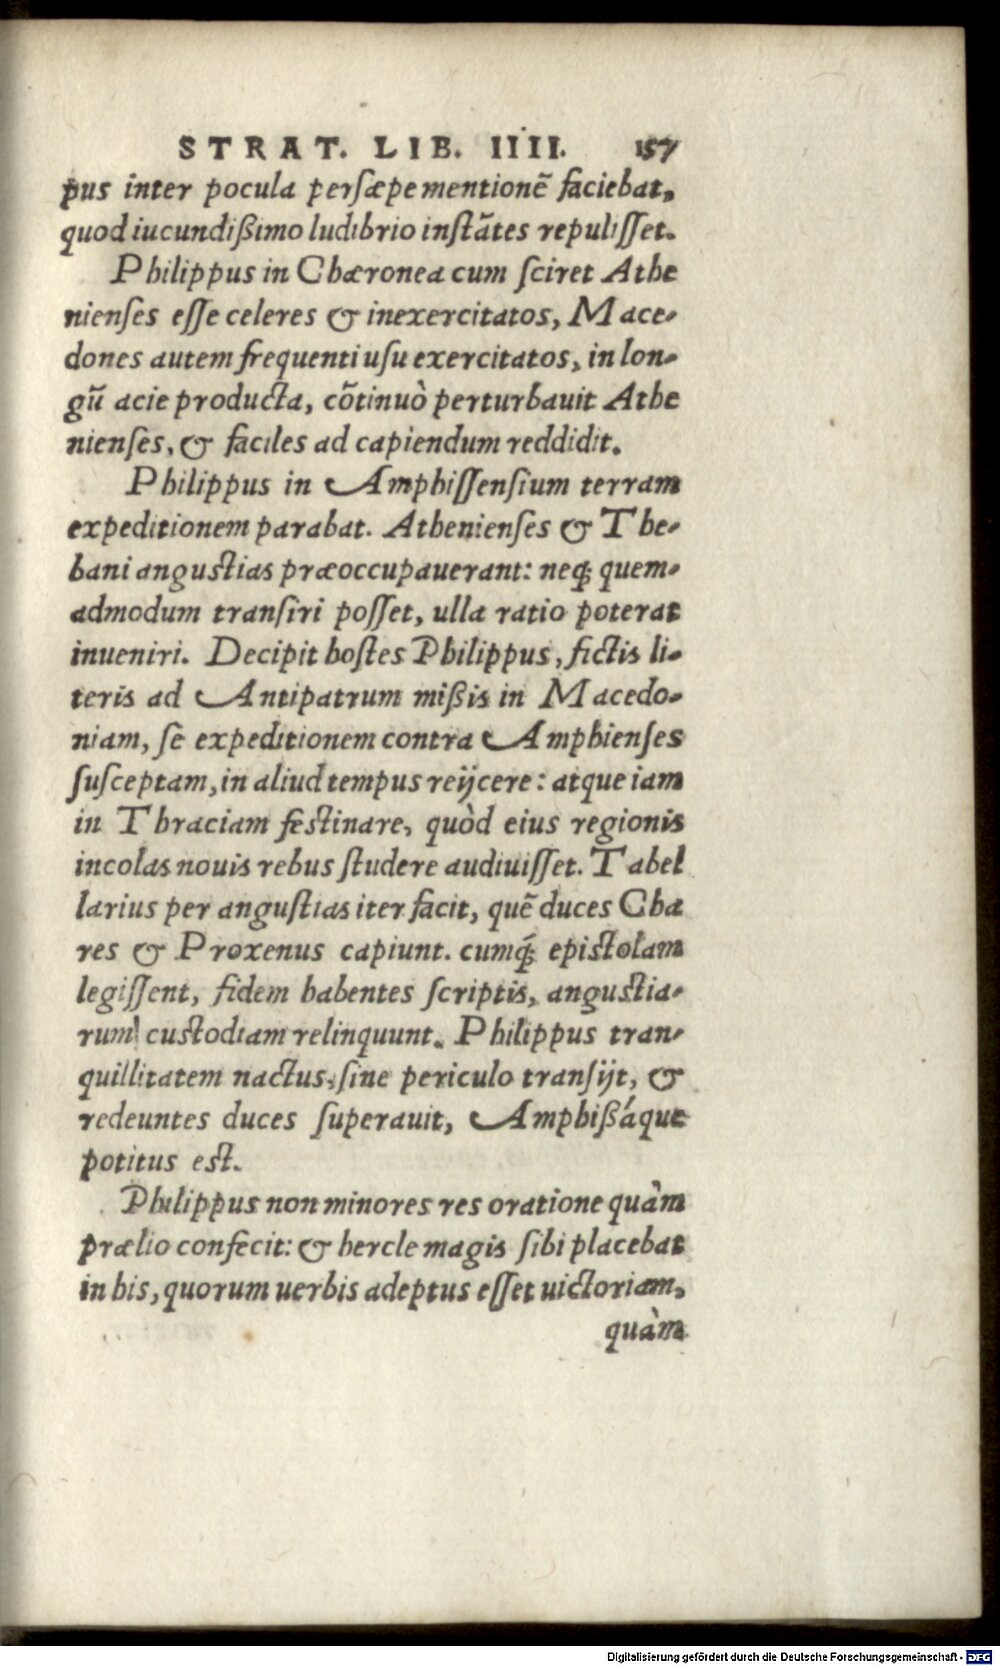 STRAT. LIB. IIII. 157
pus inter pocula persæpe mentionē faciebat,
quod iucundißimo ludibrio instātes repulisset.
Philippus in Chæronea cum sciret Athe
nienses esse celeres & inexercitatos, Mace-
dones autem frequenti usu exercitatos, in lon-
gū acie producta, cōtinuò perturbauit Athe
nienses, & faciles ad capiendum reddidit.
Philippus in Amphissensium terram
expeditionem parabat. Athenienses & The-
bani angustias præoccupauerant: neq; quem-
admodum transiri posset, ulla ratio poterat
inueniri. Decipit hostes Philippus, fictis li-
teris ad Antipatrum mißis in Macedo-
niam, se expeditionem contra Amphienses
susceptam, in aliud tempus reijcere: atque iam
in Thraciam festinare, quòd eius regionis
incolas nouis rebus studere audiuisset. Tabel
larius per angustias iter facit, quē duces Cha
res & Proxenus capiunt. cumq́; epistolam
legissent, fidem habentes scriptis, angustia-
rum custodiam relinquunt. Philippus tran-
quillitatem nactus, sine periculo transijt, &
redeuntes duces superauit, Amphißáque
potitus est.
Philippus non minores res oratione quàm
prælio confecit: & hercle magis sibi placebat
in his, quorum uerbis adeptus esset uictoriam,
quàm
Digitalisierung gefördert durch die Deutsche Forschungsgemeinschaft - DFG